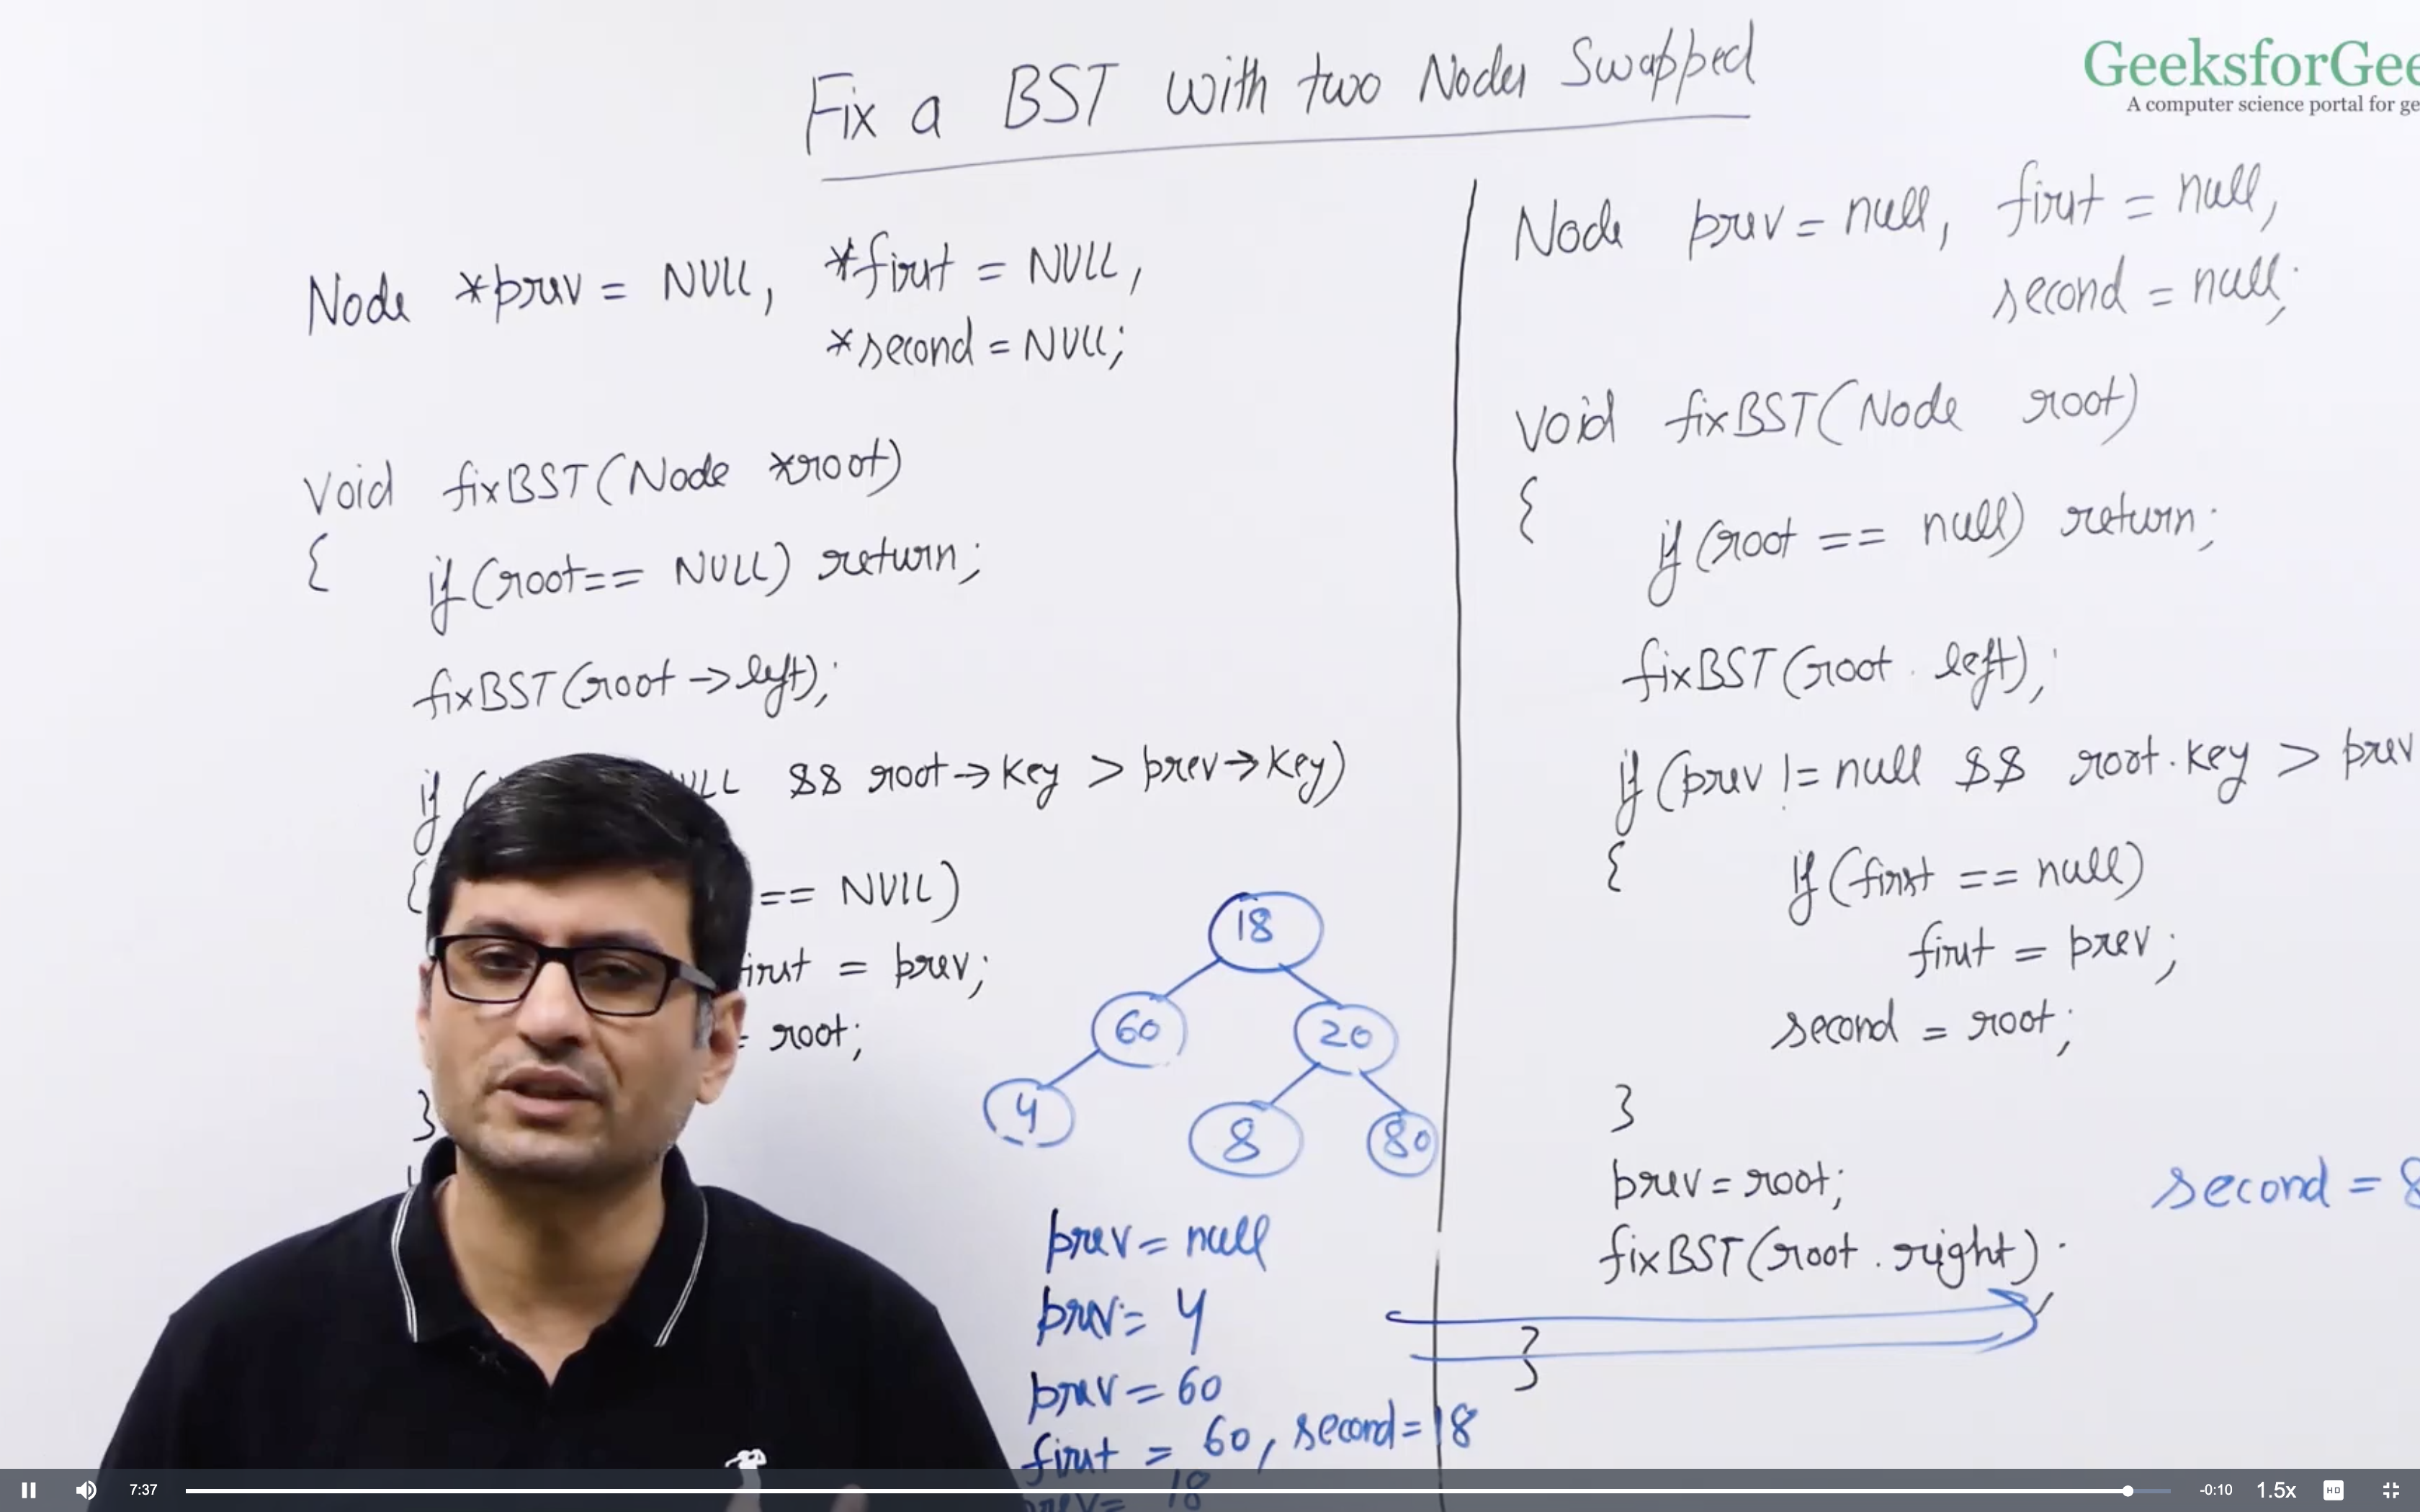 Fix a BST with two Nodes Swapped
GeeksforGee
A computer science portal for ge
Node *prev = NULL, *first = NULL,
*second = NULL;
void fixBST(Node *root)
{ if(root== NULL) return;
fixBST(root->left);
if ( ULL && root->key > prev->key)
{ == NULL)
irst = prev;
= root;
}
18
60
20
4
8
80
prev = null
prev = 4
prev = 60
first = 60, second = 18
prev = 18
Node prev = null, first = null,
second = null;
void fixBST(Node root)
{
if(root == null) return;
fixBST(root.left);
if(prev != null && root.key > prev
{ if(first == null)
first = prev;
second = root;
}
prev = root;
second = 8
fixBST(root.right)
}
7:37
-0:10
1.5x
HD